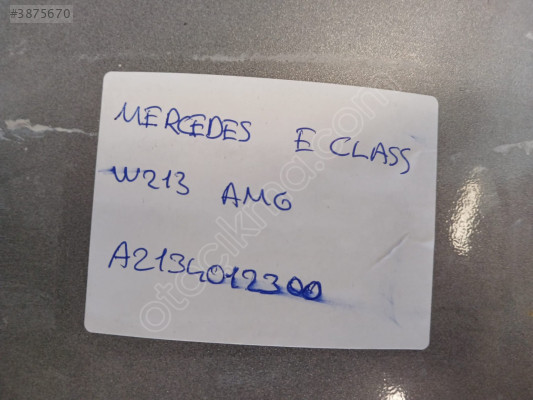 #3875670
MERCEDES E CLASS
W213 AMG
A2134012300
otocikma.com